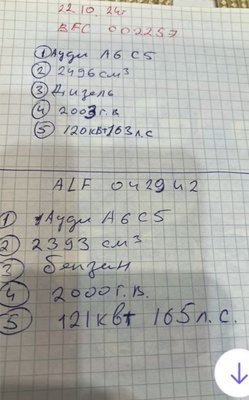 22.10.24г
BFC 002257
① Ауди А6 С5
② 2496 см³
③ Дизель
④ 2003 г.в
⑤ 120кВт 163 л.с
ALF 042942
① Ауди А6 С5
② 2393 см³
③ бензин
④ 2000г.в.
⑤ 121кВт 165 л.с.